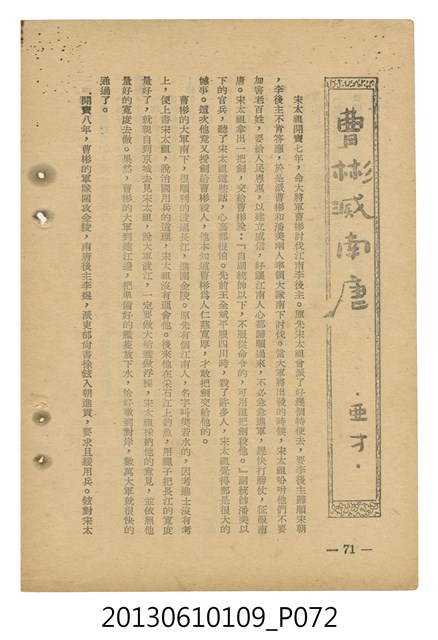 曹彬滅南唐
·亜才·
宋太祖開寶七年,命大將軍曹彬討伐江南李後主。原先宋太祖曾派了好幾個特使去,要李後主歸順宋朝
,李後主不肯答應,於是派曹彬和潘美兩人率領大隊南下討伐。當大軍將出發的時候,宋太祖吩咐他們不要
加害老百姓,要給人民恩惠,以建立威信,好讓江南人心都歸順過來,不必急急進軍,趕快打勝仗,征服南
唐。宋太祖拿出一把劍,交給曹彬說:「自副統帥以下,不服從命令的,可用這把劍殺他。」副統帥潘美以
下的官兵,聽了宋太祖這些話,心裏都很怕。先前王全斌平服四川時,殺了許多人,宋太祖覺得都是很大的
憾事。這次他竟又授劍給曹彬殺人,他不知道曹彬為人仁慈寬厚,才敢把劍交給他的。
曹彬的大軍南下,很順利的渡過長江,進攻金陵。原先有個江南人,名字叫樊若水的,因考進士沒有考
上,便上書宋太祖,說治國用兵的道理,宋太祖沒有理會他。後來他在采石江上釣魚,用繩子把長江的寬度
量好了,就親自到京城去見宋太祖,說大軍渡江,一定要做大給艦做浮樑,宋太祖採納他的意見,並依照他
量好的寬度去做。果然,曹彬的大軍到達江邊,把準備好的艦艇放下水,恰好敷到對岸,數萬大軍就很快的
通過了。
開寶八年,曹彬的軍隊圍攻金陵,南唐後主李煜,派吏部尚書徐鉉入朝進貢,要求且緩用兵。鉉對宋太
— 71 —
20130610109_P072